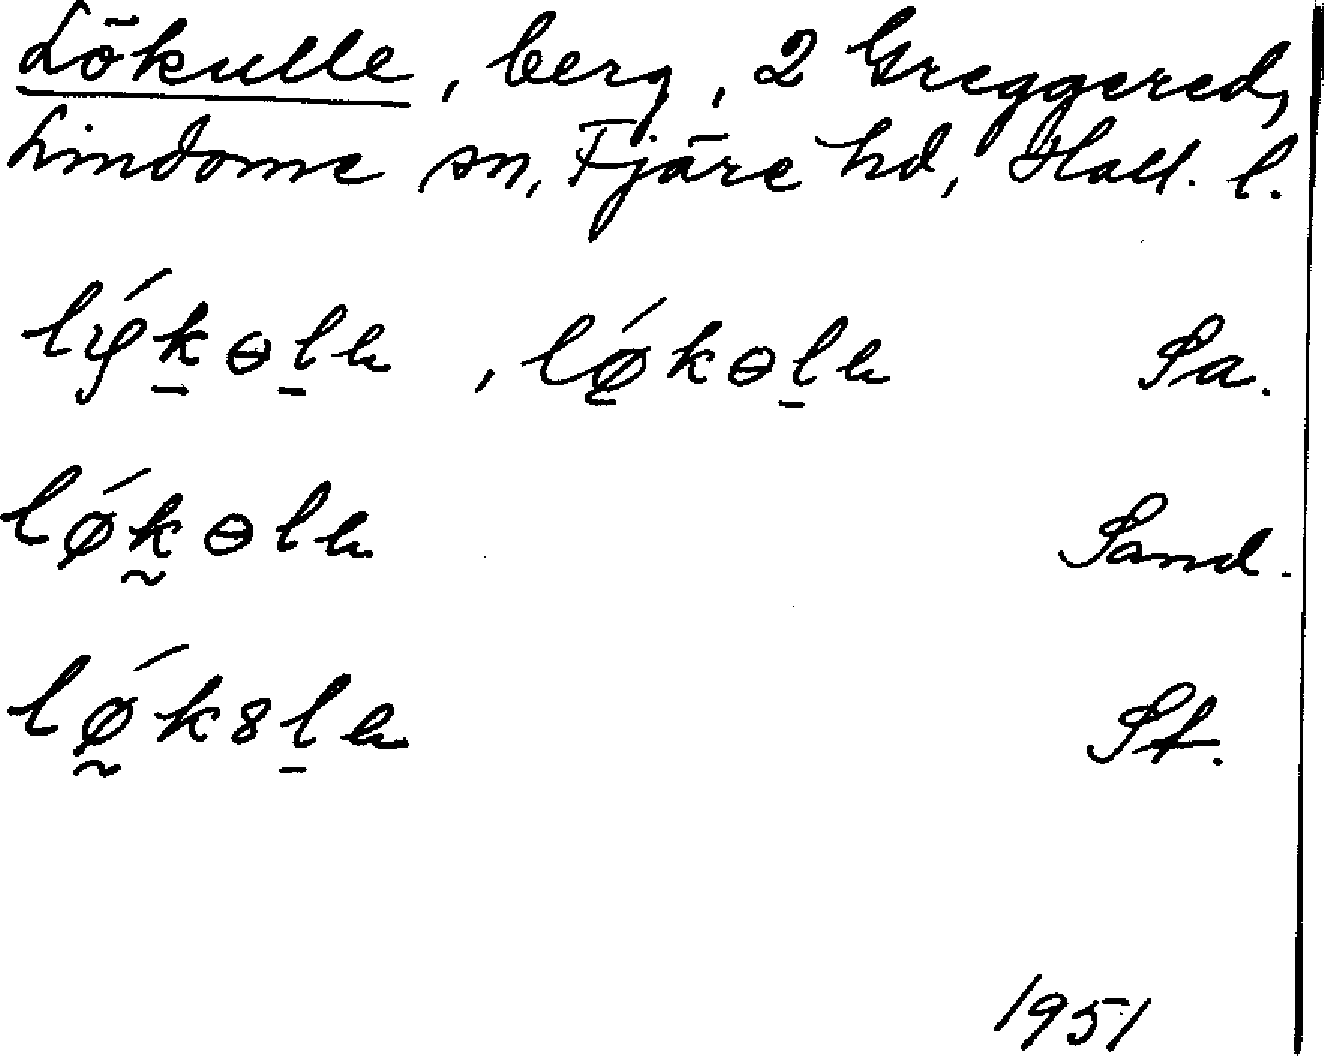 Lökulle, berg, 2 Greggered,
Lindome sn, Fjäre hd, Hall. l.
lýkɵlɐ, lǿkɵlɐ Sa.
lǿkɵlɐ Sand.
lǿk8lɐ St.
1951